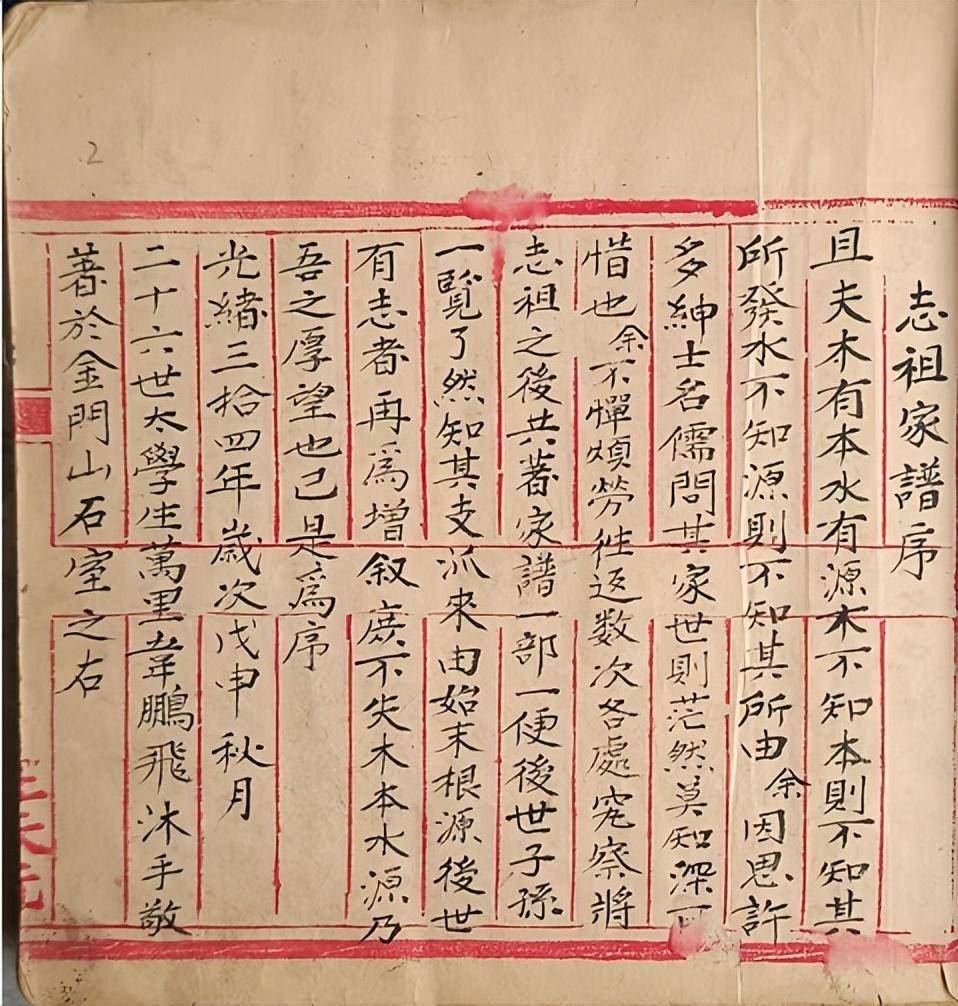 志祖家譜序
且夫木有本水有源木不知本則不知其
所發水不知源則不知其所由余因思許
多紳士名儒問其家世則茫然莫知深可
惜也余不憚煩勞徃返數次各處究察將
志祖之後共著家譜一部一便後世子孫
一覽了然知其支派來由始末根源後世
有志者再爲增叙庶不失木本水源乃
吾之厚望也已是爲序
光緒三拾四年歲次戊申秋月
二十六世太學生萬里韋鵬飛沐手敬
著於金門山石室之右
2